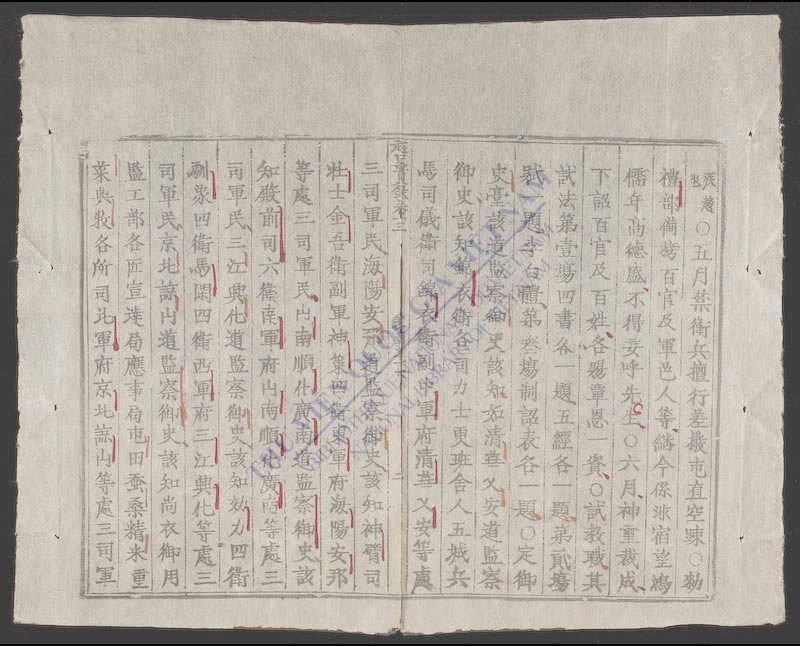 張楚
也
○五月禁衛兵擅行差撥屯直空疎○勑
禮部備諸百官及軍邑人等継今係派宿望為
儒年高德盛不得妄呼先生○六月神重裁成
下詔百官及百姓各陽覃恩一資○試教職其
試法第壹塲四書各一題五經各一題第貳塲
賦一題李白體第叁塲制詔表各一題○定御
史臺該道監察御史該知如清華乂安道監察
御史該知錦衣衛各司力士更班舍人五城兵
馬司儀衛司錦衣衛副中軍府清華乂安等處
三司軍民海陽安邦道監察御史該知神臂司
壯士金吾衛副軍神策四衛東軍府海陽安邦
等處三司軍民山南順化廣南道監察御史該
知殿前司六衛南軍府山南順化廣南等處三
司軍民三江興化道監察御史該知効力四衛
馴象四衛馬閑四衛西軍府三江興化等處三
司軍民京北諒山道監察御史該知尚衣御用
監工部各匠宣達局應事局屯田蚕桑精米重
菜典牧各所司北軍府京北諒山等處三司軍
THƯ VIỆN QUỐC GIA VIỆT NAM
NATIONAL LIBRARY OF VIETNAM